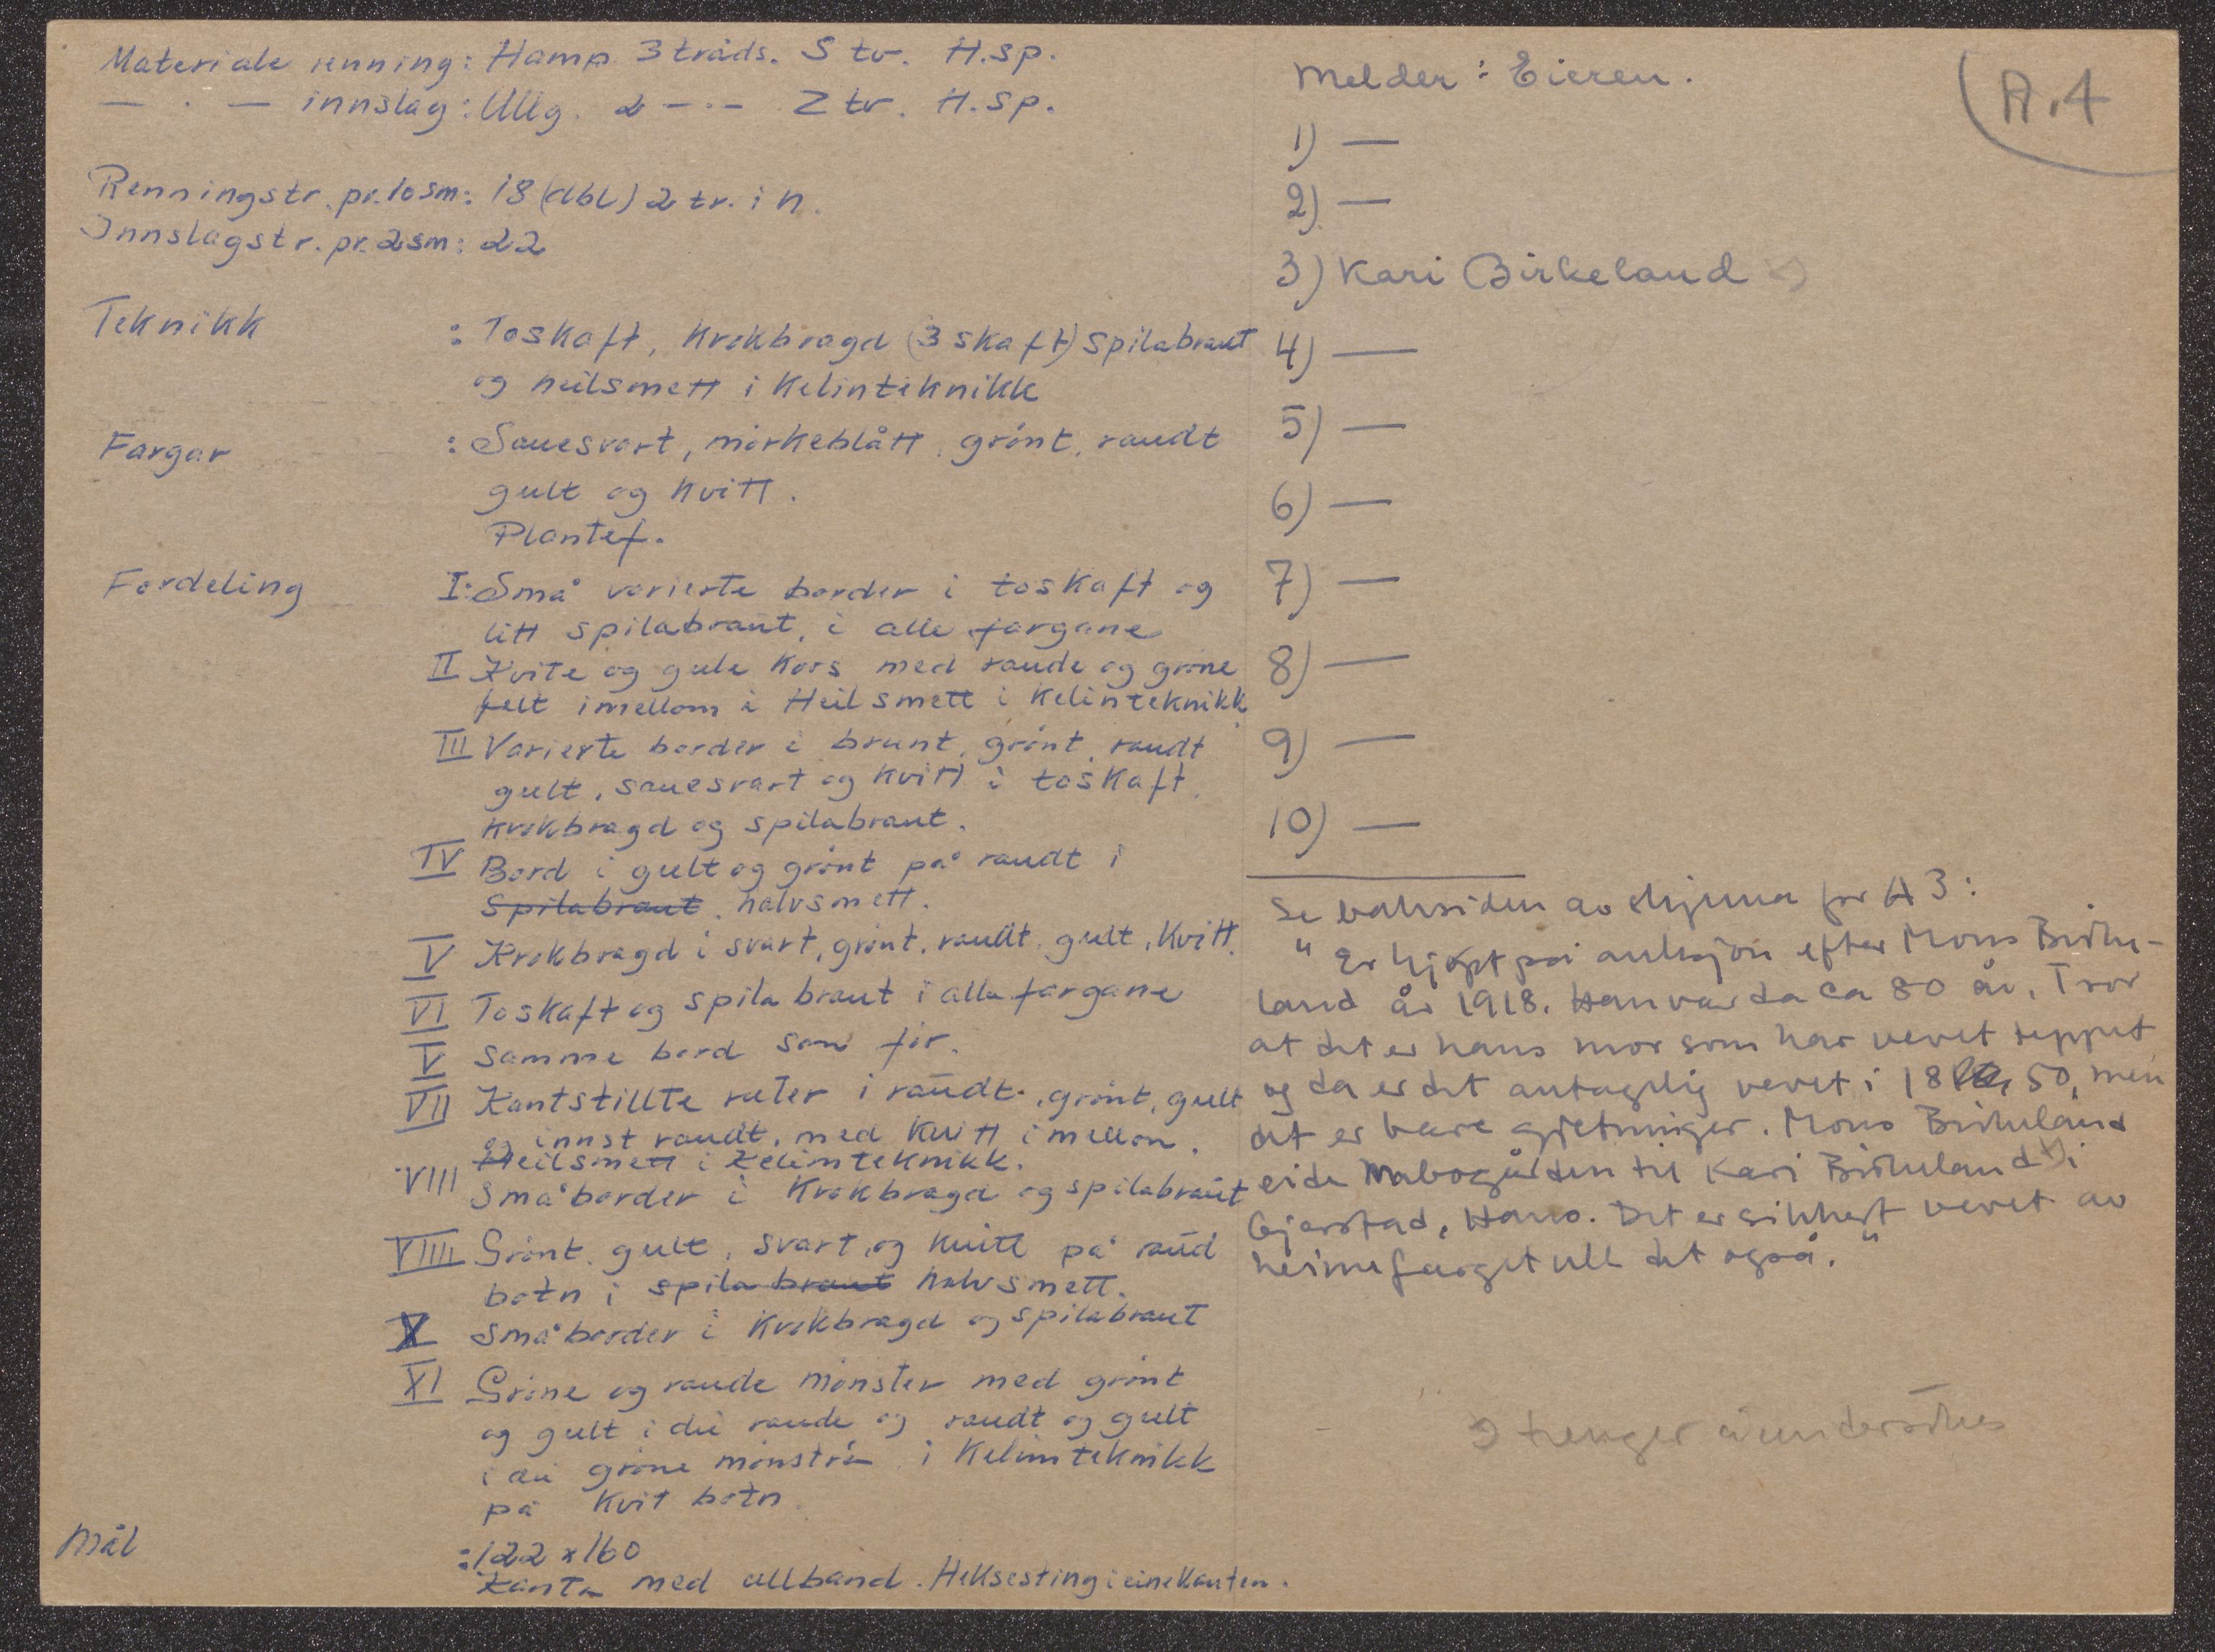 Materiale renning: Hamp 3 tråds. S tv. H.sp.
— · — innslag: Ullg. 2 -·- Z tv. H.sp.
Renningstr. pr. 10 sm: 18 (dbl) 2 tr. i n.
Innslagstr. pr. 2 sm: 22
Teknikk : Toskaft, Krokbragd (3 skaft) Spilabraut
og heilsmett i Kelinteknikk
Fargar : Sauesvart, mörkeblått, grönt, raudt
gult og kvitt.
Plantef.
Fordeling I: Små varierte border i toskaft og
litt spilabraut, i alle fargane
II Kvite og gule Kors med raude og gröne
felt imellom i Heilsmett i Kelinteknikk
III Varierte border i brunt, grönt, raudt
gult, sauesvart og kvitt i toskaft,
krokbragd og spilabraut.
IV Bord i gult og grönt på raudt i
Spilabraut. halvsmett.
V Krokbragd i svart, grönt, raudt, gult, Kvitt.
VI Toskaft og spilabraut i alle fargane
V Samme bord som för.
VII Kantstillte ruter i raudt, grönt, gult
og innst raudt, med Kvitt imellom.
Heilsmett i Kelimteknikk.
VIII Små border i Krokbragd og spilabraut
VIIII Grönt, gult, svart, og kvitt på raud
botn i spilabraut halvsmett.
X Små border i Krokbragd og spilabraut
XI Gröne og raude mönster med grönt
og gult i dei raude og raudt og gult
i dei gröne mönstra i Kelimteknikk
på Kvit botn.
Mål : 122 x 160
Kanta med ullband. Heksesting i eine Kanten.
Melder : Eieren.
A.4
1) —
2) —
3) Kari Birkeland
4) —
5) —
6) —
7) —
8) —
9) —
10) —
Se baksiden av skjema for A 3:
"Er kjøpt på auksjon efter Mons Birke-
land år 1918. Han var da ca 80 år. Tror
at det er hans mor som har vevet teppet
og da er det antagelig vevet i 18 50, men
det er bare gjetninger. Mons Birkeland
eide Nabogården til Kari Birkeland i
Gjerstad, Haus. Det er sikkert vevet av
heimefarget ull det også."
trenger å undersökes